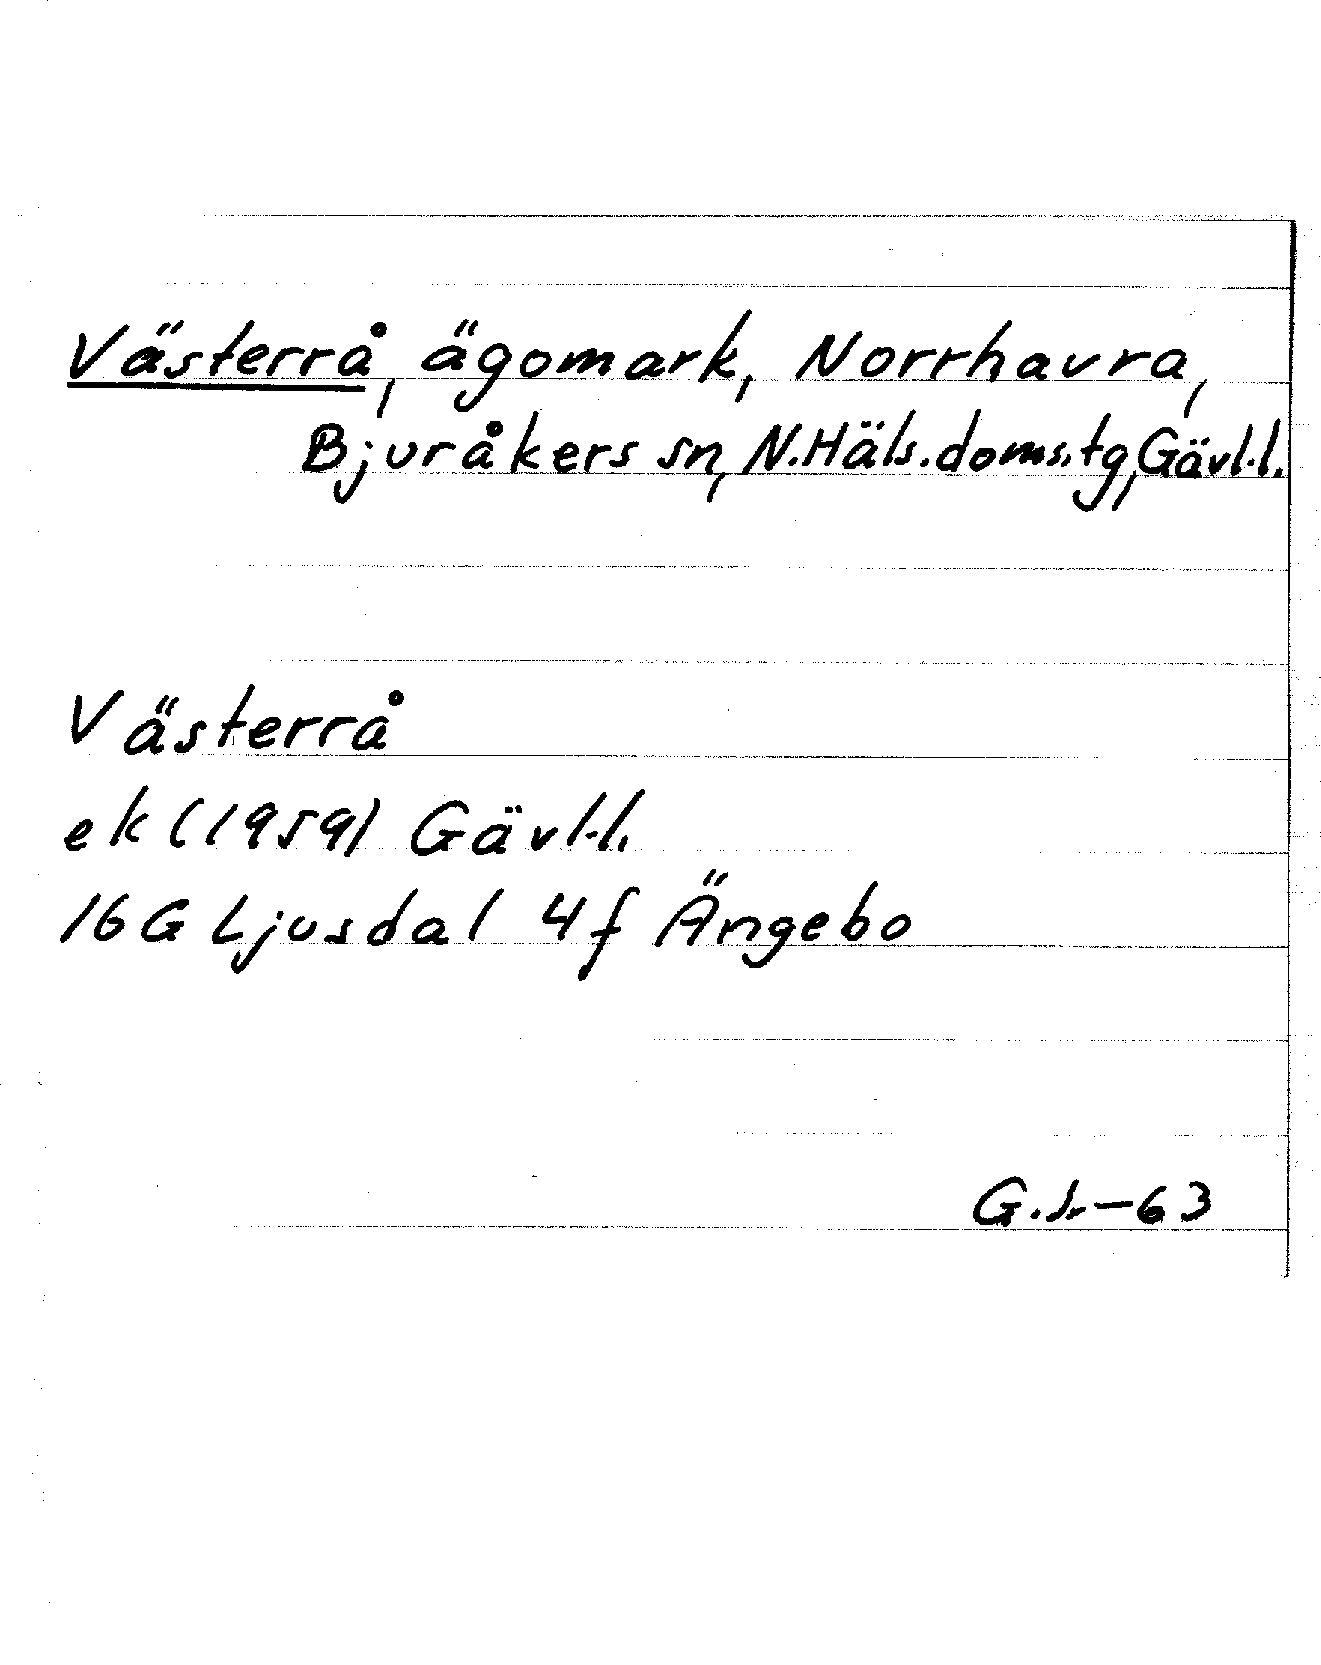 Västerrå, ägomark, Norrhavra,
Bjuråkers sn, N.Häls.doms.tg, Gävl.l.
Västerrå
ek (1959) Gävl.l.
16 G Ljusdal 4f Ängebo
G.Jr-63